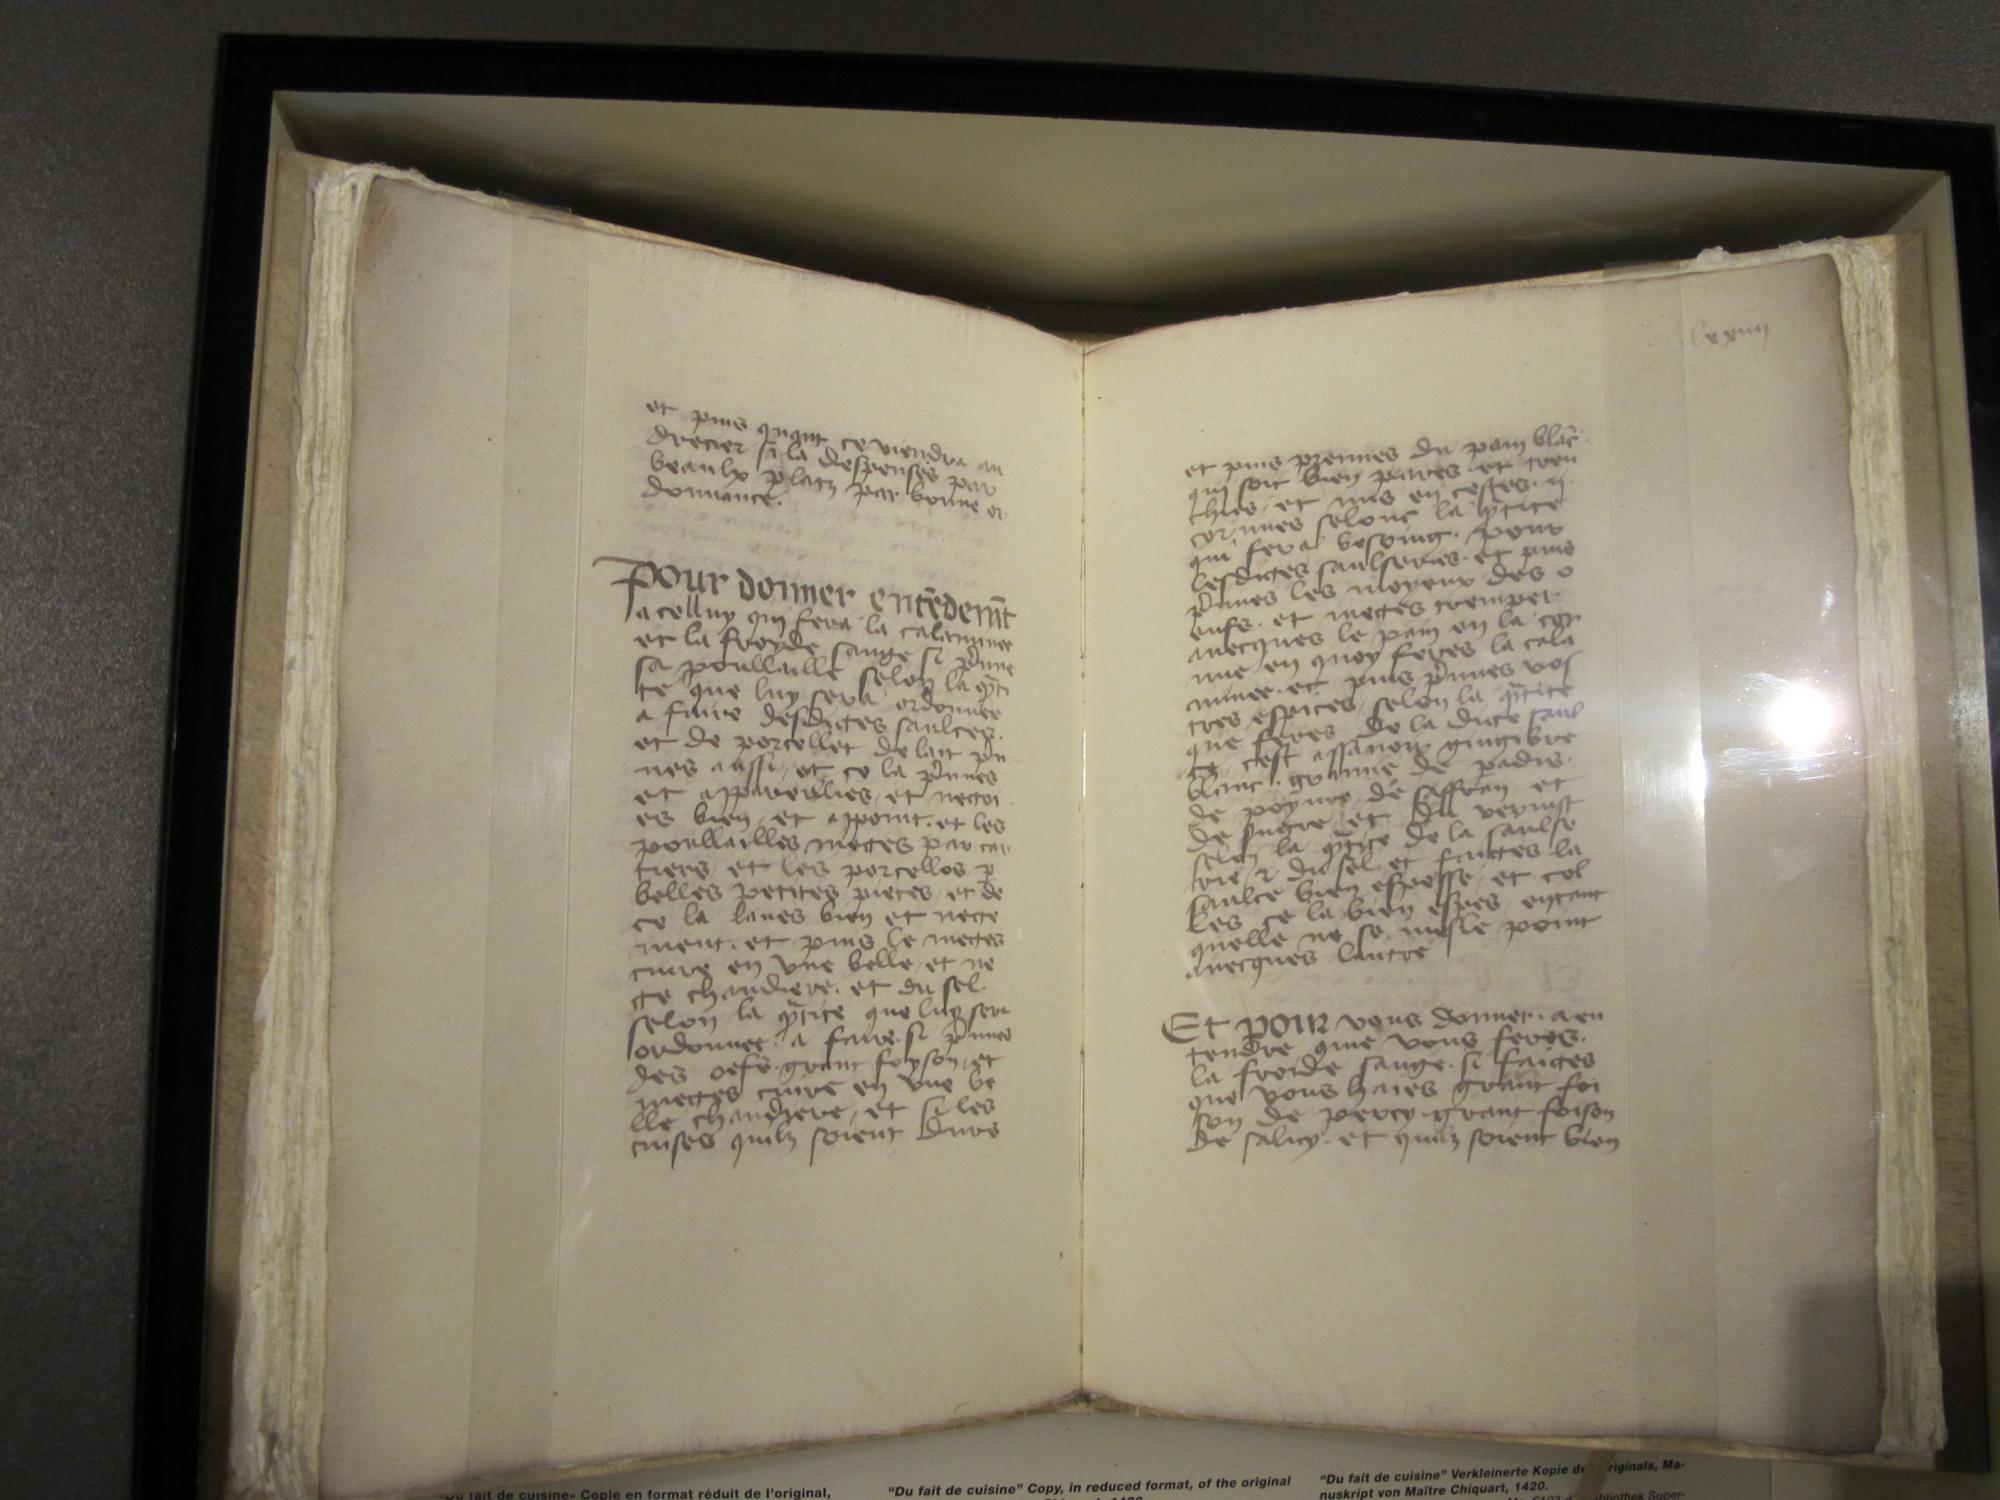 et puis quant ce viendra au
drecier si la despensés par
beaulx platz par bonne or
donnance.
Pour donner entēdemt̄
a celluy qui fera la calaminee
et la froyde sauge si p̄nne
sa poullaille selon la q̄nti
te que luy sera ordonnee
a faire desdictes saulces.
et de porcellet de lait p̄n
nes aussi et ce la p̄nnes
et appareillies et nectoi
es bien et appoint. et les
poullailles mectes par car
tiers et les porcellos p
belles petites pieces et de
ce la laues bien et necte
ment. et puis le mectes
cuire en vne belle et ne
cte chaudiere. et du sel
selon la q̄ntite que luy sera
ordonnee a faire. si p̄nnes
des oefs grant foyson et
mectes cuire en vne be
lle chaudiere, et si les
cuises quilz soient durs
lxxiiii
et puis prennes du pain blāc
qui soit bien pares et tren
chies, et mis en cestes. ii
cornues selonc la q̄ntite
qui fera besoing. pour
lesdictes saulseries. et puis
p̄nnes les moyeux des o
eufs. et mectes tremper
auecques le pain en la cor
nue en quoy feres la cala
minee. et puis p̄nnes vos
tres espices, selon la q̄ntite
que feres de la dicte saul
ce, cest assauoir gingibre
blanc. granne de padis.
de poyure de saffran et
de sucre et du veriust
selon la q̄ntite de la saulse
rie, 2 du sel et faictes la
saulce bien espesse et col
les ce la bien espes entant
quelle ne se mesle point
auecques lautre
Et pour vous donner. a en
tendre que vous feres.
la froide sauge. si faictes
que vous haies grant foi
son de percy. grant foison
de saluy. et quilz soient bien
"Du fait de cuisine» Copie en format réduit de l'original,
"Du fait de cuisine" Copy, in reduced format, of the original
"Du fait de cuisine" Verkleinerte Kopie des Originals, Ma-
nuskript von Maître Chiquart, 1420.